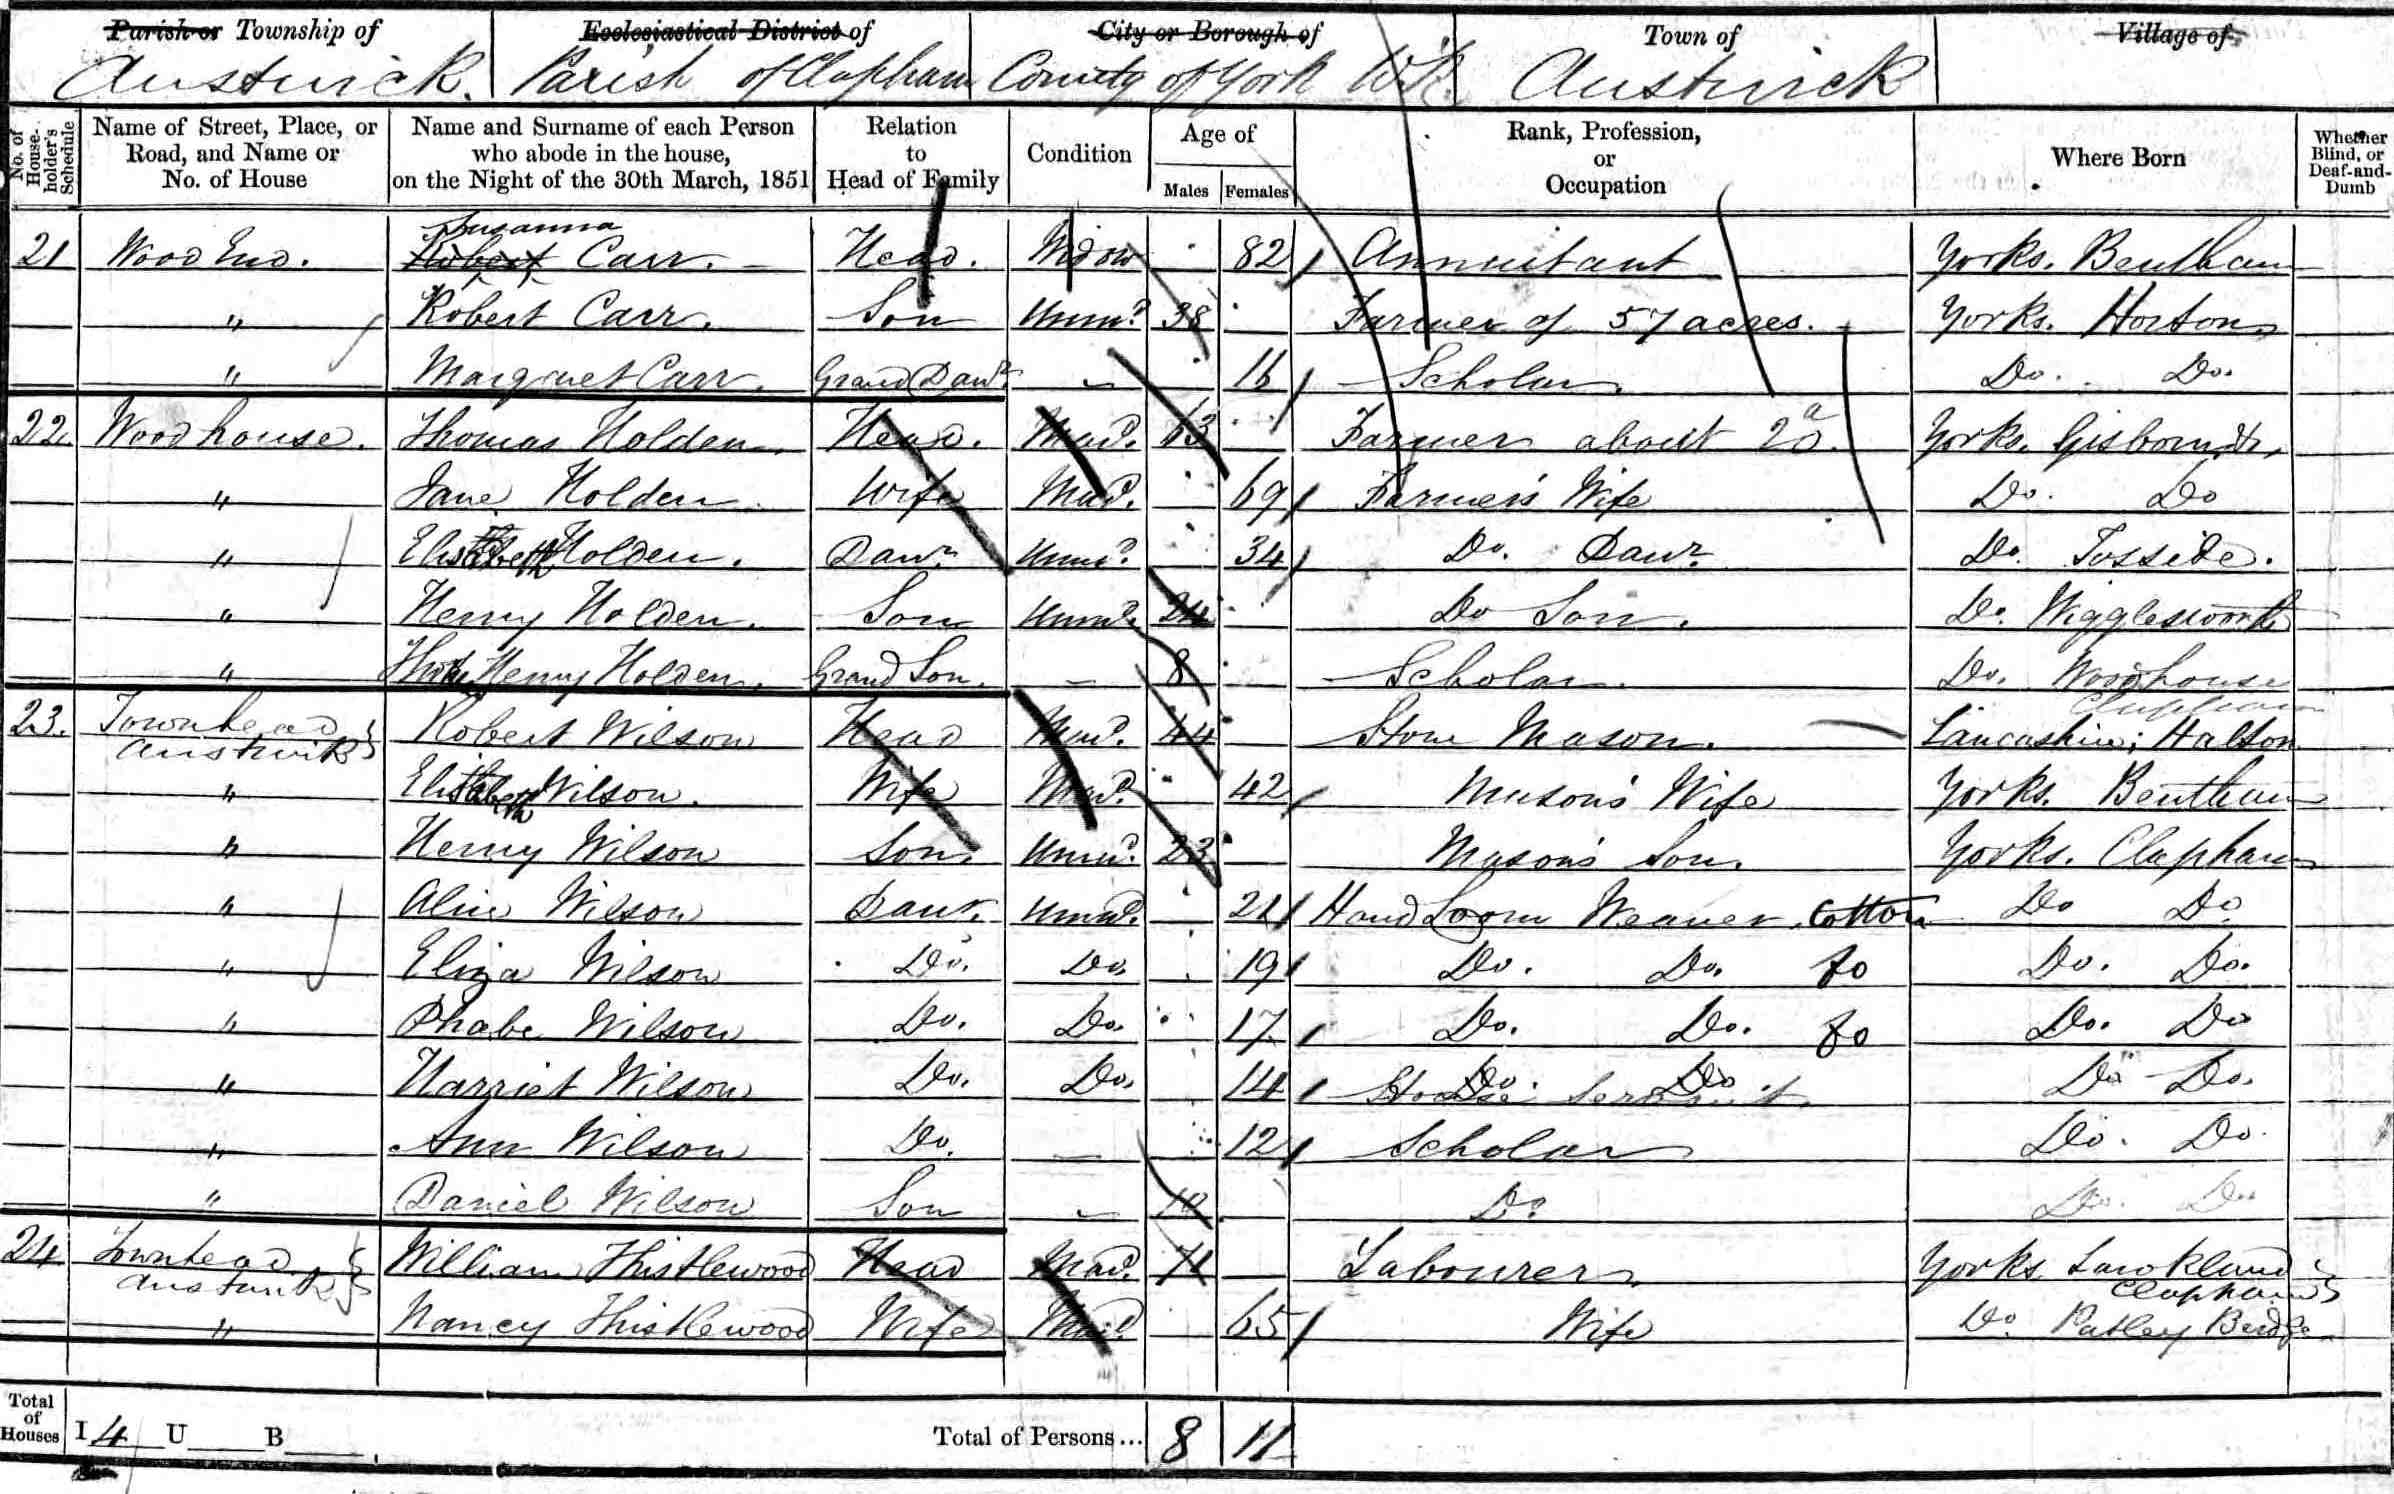 Parish or Township of Ecclesiastical District of City or Borough of Town of Village of
Austwick. Parish of Clapham County of York W.R. Austwick
No. of House-holder's Schedule Name of Street, Place, or Road, and Name or No. of House Name and Surname of each Person who abode in the house, on the Night of the 30th March, 1851 Relation to Head of Family Condition Age of Males Females Rank, Profession, or Occupation Where Born Whether Blind, or Deaf-and-Dumb
Susanna
21 Wood End. Robert Carr. Head. Widow 82 Annuitant Yorks. Bentham
" Robert Carr. Son Unmd. 38 Farmer of 57 acres. Yorks. Horton
" Margaret Carr. Grand Daur. - 16 Scholar. Do. Do.
22 Woodhouse. Thomas Holden. Head. Mard. 63 Farmer about 20 a. Yorks.
" Jane Holden Wife Mard. 69 Farmer's Wife Do. Do
" Elisabeth Holden. Daur. Unmd. 34 Do. Daur. Do. Tosside.
" Henry Holden. Son Unmd. 24 Do Son. Do. Wigglesworth
" Thos. Henry Holden. Grand Son. - 8 Scholar. Do. Woodhouse
Clapham
23. Townhead Austwick Robert Wilson Head Mard. 44 Stone Mason. Lancashire; Halton
" Elisabeth Wilson. Wife Mard. 42 Mason's Wife Yorks. Bentham
" Henry Wilson Son. Unmd. 23 Mason's Son. Yorks. Clapham
" Alice Wilson Daur. Unmd. 21 Hand Loom Weaver Cotton Do Do.
" Eliza Wilson Do. Do. 19 Do. Do. Do Do. Do.
" Phabe Wilson Do. Do. 17 Do. Do. Do Do. Do
" Harriet Wilson Do. Do. 14 House Servant. Do. Do Do Do.
" Ann Wilson Do. - 12 Scholar Do. Do.
" Daniel Wilson Son - 10 Do. Do. Do.
24 Townhead Austwick William Thistlewood Head Mard. 71 Labourer. Yorks. Lawkland Clapham
" Nancy Thistlewood Wife Mard. 65 Wife Do. Patley Bridge
Total of Houses I 4 U B Total of Persons... 8 11